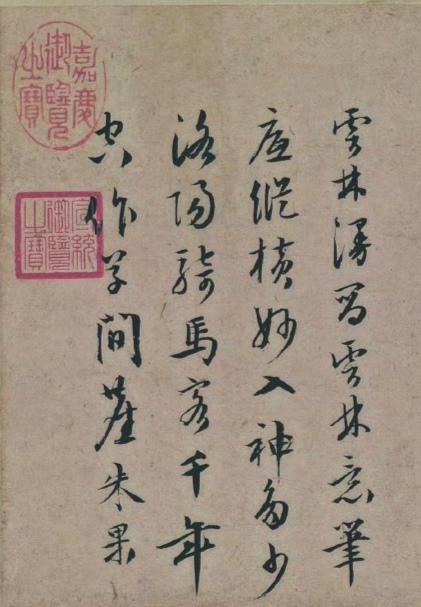 雲林漫寫雲林意筆
底縱橫妙入神多少
洛陽騎馬客千年
空作草間塵朱果
嘉慶御覽之寶
宣統御覽之寶